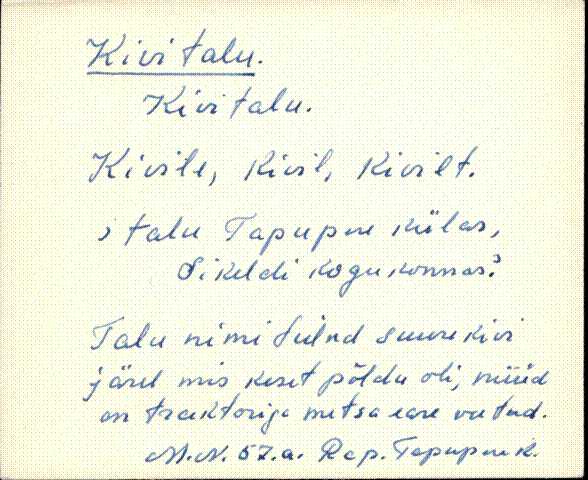 Kivi talu.
Kivi talu.
Kivile, kivil, kivilt.
talu Tapupere külas,
Sikeldi kogukonnas?
Talu nimi tulnd suure kivi
järel mis keset põldu oli, nüüd
on traktoriga metsa eare veetud.
M.N. 57.a. Rap. Tapupere k.